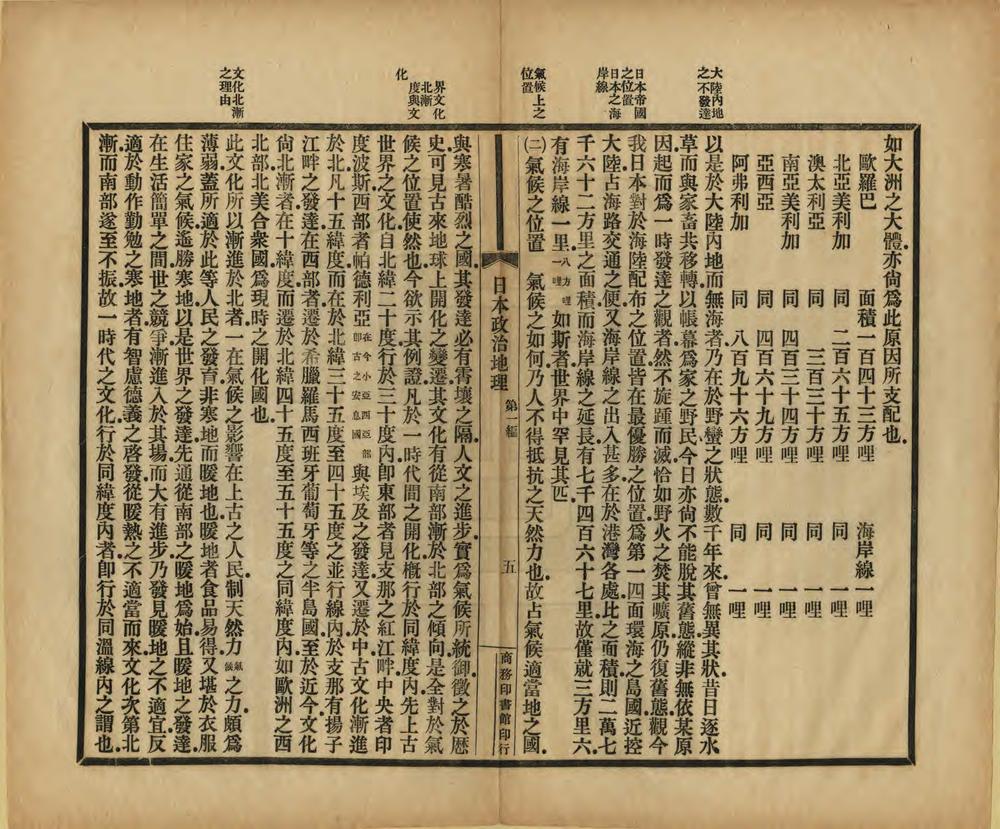 大陸內地
之不發達
日本帝國
之位置
日本之海
岸線
氣候上之
位置
如大洲之大體亦尙爲此原因所支配也
歐羅巴 面積一百四十三方哩 海岸線一哩
北亞美利加 同 二百六十五方哩 同 一哩
澳太利亞 同 三百三十方哩 同 一哩
南亞美利加 同 四百三十四方哩 同 一哩
亞西亞 同 四百六十九方哩 同 一哩
阿弗利加 同 八百九十六方哩 同 一哩
以是於大陸內地而無海者乃在於野蠻之狀態數千年來曾無異其狀昔日逐水
草而與家畜共移轉以帳幕爲家之野民今日亦尙不能脫其舊態縱非無依某原
因起而爲一時發達之觀者然不旋踵而滅恰如野火之焚其曠原仍復舊態觀今
我日本對於海陸配布之位置皆在最優勝之位置爲第一四面環海之島國近控
大陸占海路交通之便又海岸線之出入甚多在於港灣各處比之面積則二萬七
千六十二方里之面積而海岸線之延長有七千四百六十七里故僅就三方里六
有海岸線一里八方哩一哩如斯者世界中罕見其匹
㈡氣候之位置 氣候之如何乃人不得抵抗之天然力也故占氣候適當地之國
日本政治地理 第一編 五 商務印書館印行
界文化
北漸
度與文
化
文化北漸
之理由
與寒暑酷烈之國其發達必有霄壤之隔人文之進步實爲氣候所統御徵之於歷
史可見古來地球上開化之變遷其文化有從南部漸於北部之傾向是全對於氣
候之位置使然也今欲示其例證凡於一時代間之開化概行於同緯度內先上古
世界之文化自北緯二十度行於三十度內卽東部者見支那之紅江畔中央者印
度波斯西部者帕德利亞在今小亞西亞部卽古之安息國與埃及之發達又遷於中古文化漸進
於北凡十五緯度而在於北緯三十五度至四十五度之並行線內於支那有揚子
江畔之發達在西部者遷於希臘羅馬西班牙葡萄牙等之半島國至於近今文化
尙北漸者在十緯度而遷於北緯四十五度至五十五度之同緯度內如歐洲之西
北部北美合衆國爲現時之開化國也
此文化所以漸進於北者一在氣候之影響在上古之人民制天然力氣候之力頗爲
薄弱蓋所適於此等人民之發育非寒地而暖地也暖地者食品易得又堪於衣服
住家之氣候遙勝寒地以是世界之發達先通從南部之暖地爲始且暖地之發達
在生活簡單之間世之競爭漸進入於其場而大有進步乃發見暖地之不適宜反
適於動作勤勉之寒地者有智慮德義之啓發從暖熱之不適當而來文化次第北
漸而南部遂至不振故一時代之文化行於同緯度內者卽行於同溫線內之謂也